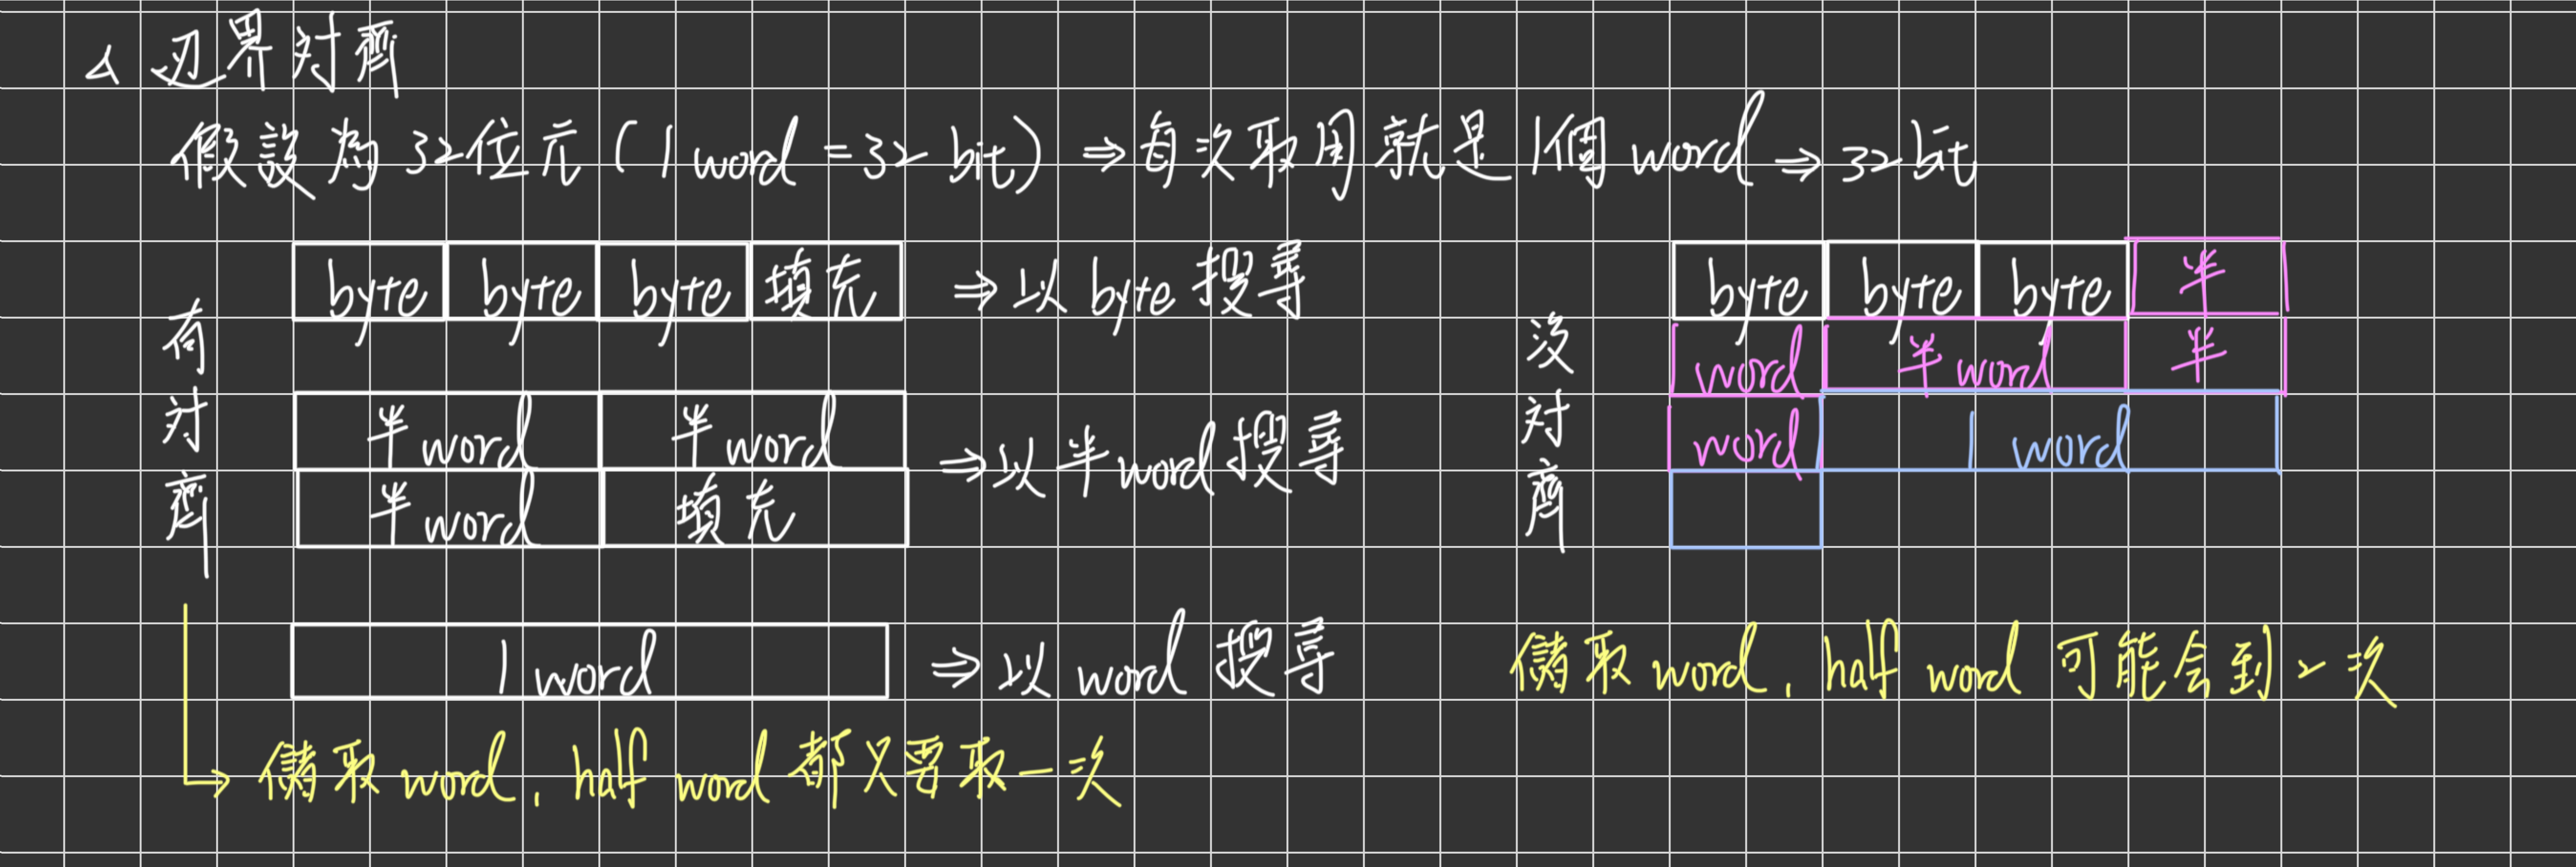 △ 边界対齊
假設為32位元(1 word = 32 bit) ⇒ 每次取用就是1個word ⇒ 32bit
有対齊
byte byte byte 填充 ⇒ 以 byte 搜尋
半word 半word ⇒ 以半word搜尋
半word 填充
1 word ⇒ 以 word 搜尋
↳ 儲取 word, half word 都只要取一次
沒対齊
byte byte byte 半
word 半word 半
word 1 word
儲取 word, half word 可能会到2次